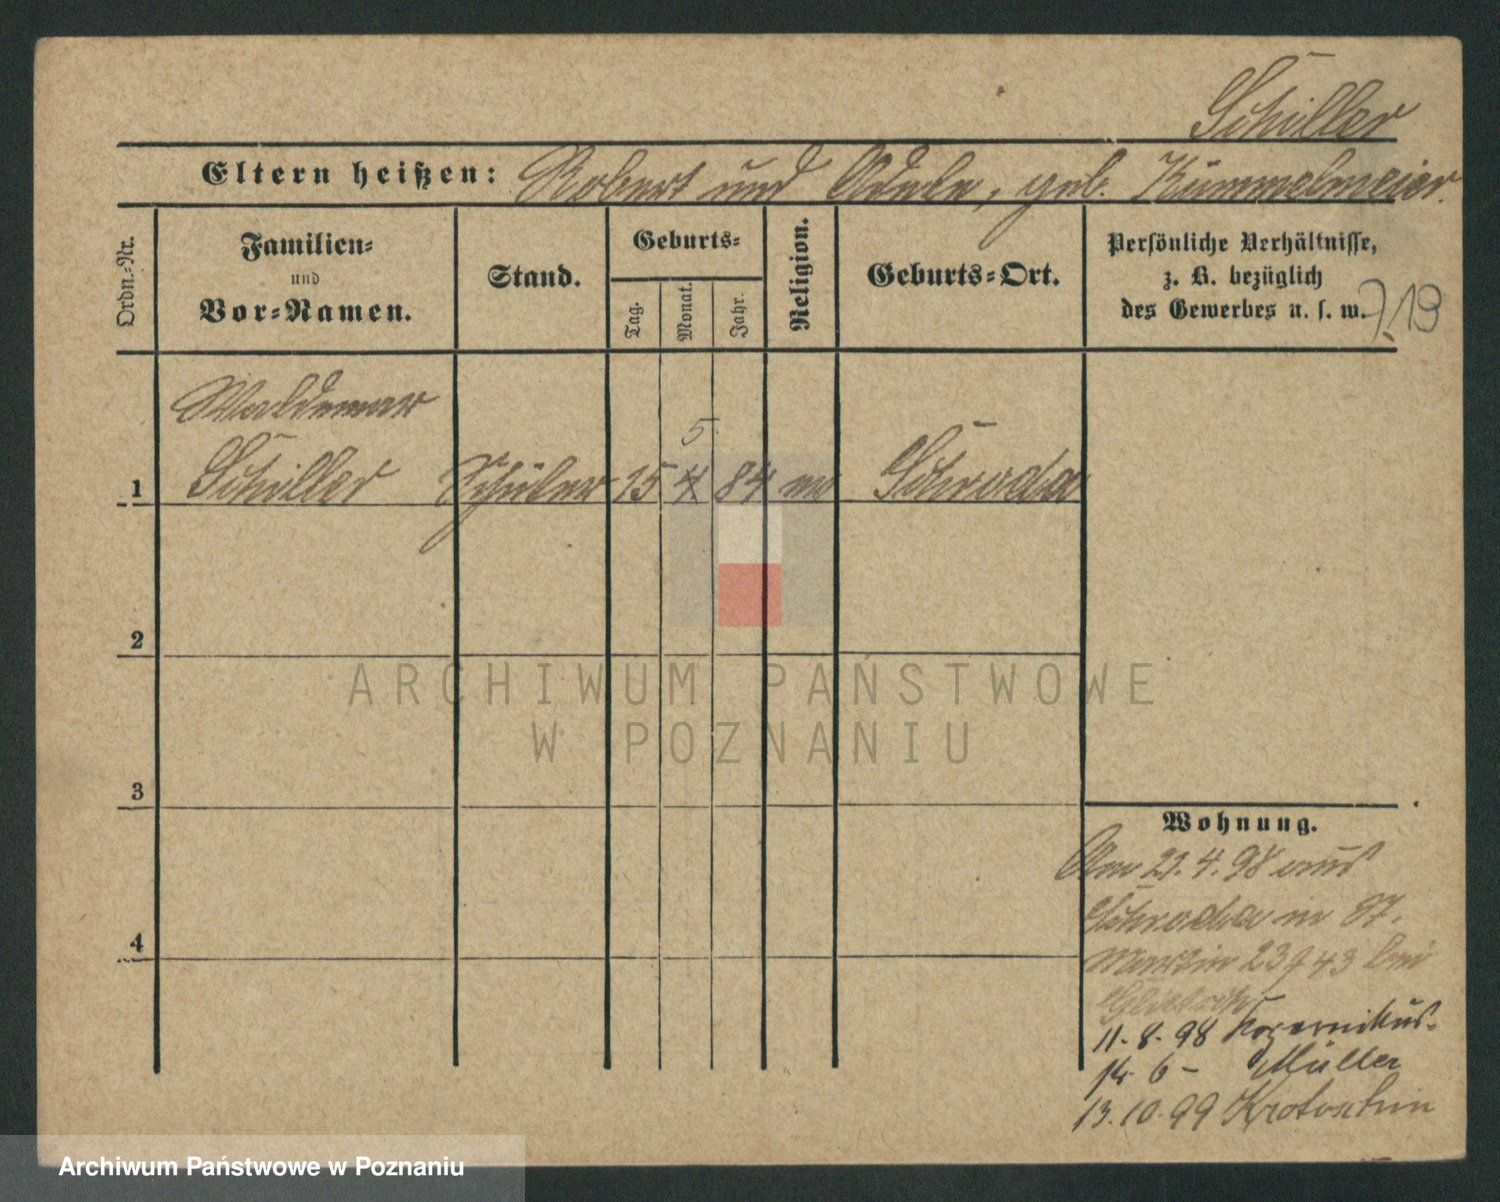 Schiller
Eltern heißen: Robert und Adele, geb. Kümmelmeier.
Ordn.-Nr.
Familien-
und
Vor-Namen.
Stand.
Geburts-
Tag.
Monat.
Jahr.
Religion.
Geburts-Ort.
Persönliche Verhältnisse,
z. B. bezüglich
des Gewerbes u. s. w.
713
Waldemar
5.
1 Schiller Schüler 15 4 84 Schroda
2
3
4
Wohnung.
Am 21. 4. 98 aus
Schroda in St.
Martin 23 43 bei
11. 8. 98 Kopernikus-
14. 6 - Müller
13. 10. 99 Krotoschin
ARCHIWUM PAŃSTWOWE
W POZNANIU
Archiwum Państwowe w Poznaniu